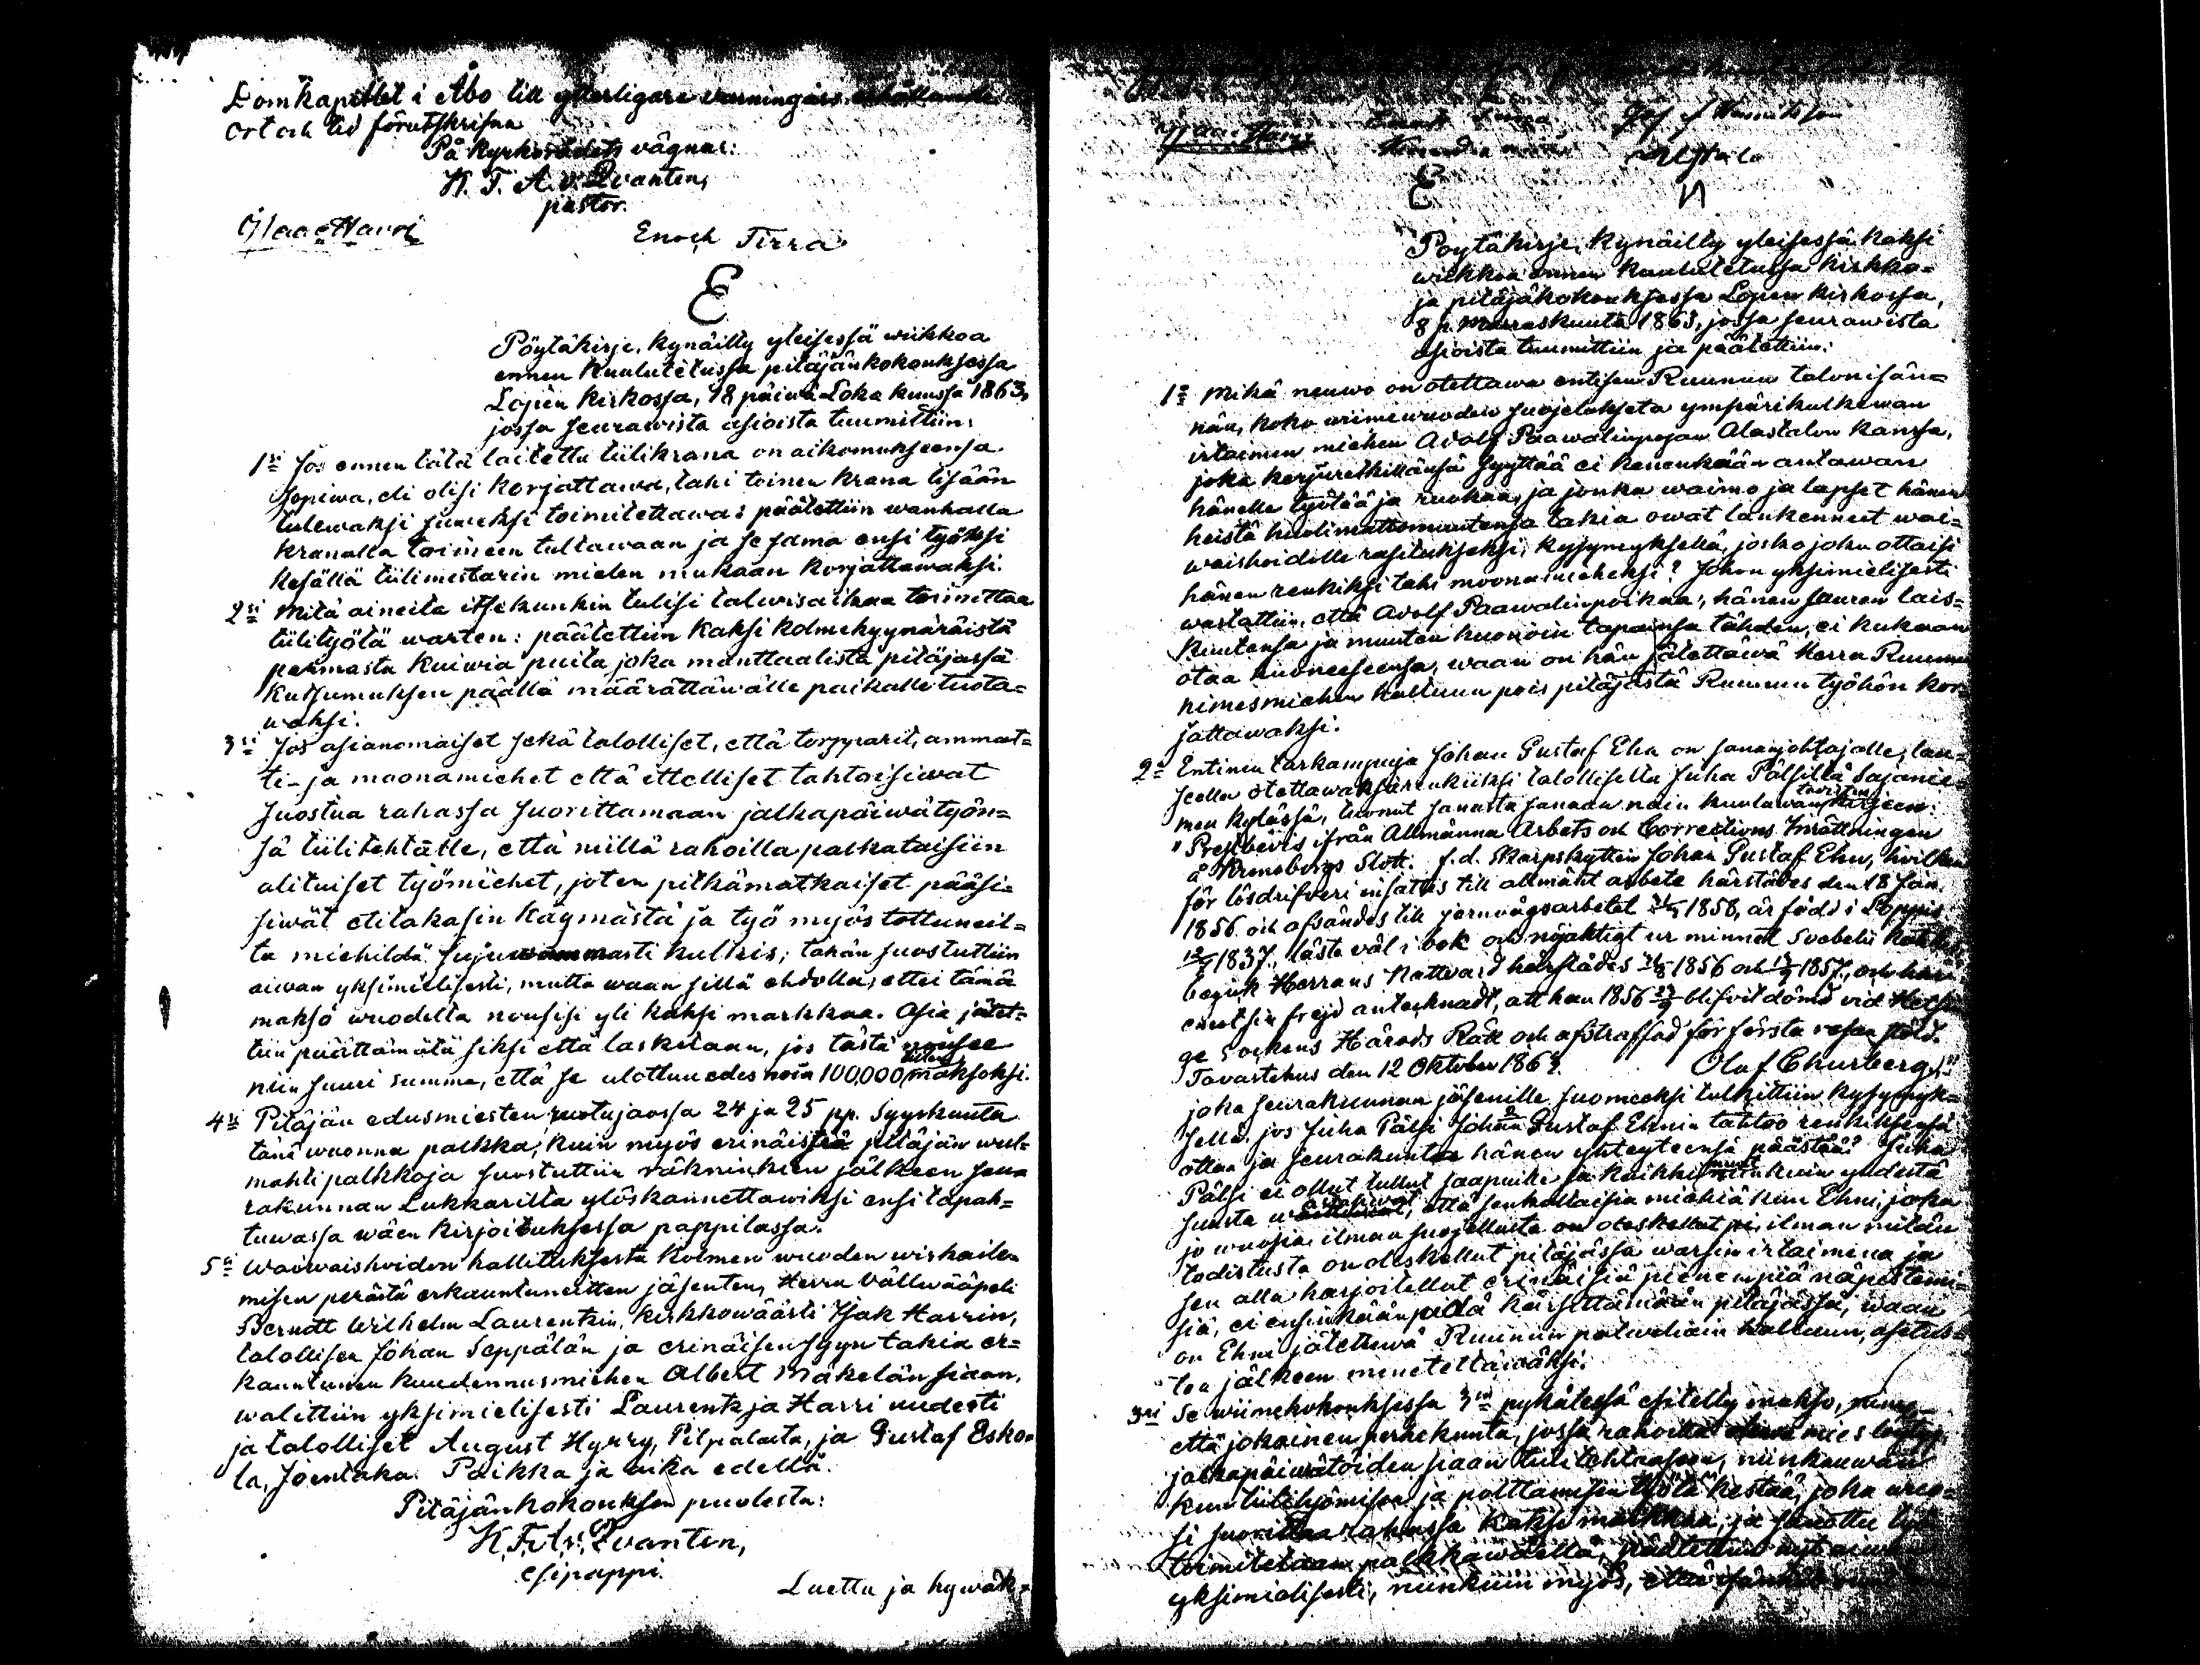 Domkapitlet i Åbo till ytterligare varningars erhållande
Ort och tid förutskrifna
På kyrkorådets vägnar:
K. F. A. v. Qvanten,
pastor.
Isaac Harri
Enoch Tirra
Pöytäkirja, kynäilty yleisessä wiikkoa
ennen kuulutetussa pitäjänkokouksessa
Lopen kirkossa, 18 päiwä Lokakuussa 1863,
jossa seurawista asioista tuumittiin:
1:si Jos ennen tätä laitettu tiilikrana on aikomukseensa
sopiwa, eli olisi korjattawa, tahi toinen krana lisään
tulewaksi suweksi toimitettawa: päätettiin wanhalla
kranalla toimeen tultawaan ja se sama ensi työksi
kesällä tiilimestarin mielen mukaan korjattawaksi.
2:si Mitä aineita itsekunkin tulisi talwisaikaa toimittaa
tiilityötä warten: päätettiin kaksi kolmekyynäräistä
parmasta kuiwia puita joka manttaalista pitäjässä
kutsumuksen päällä määrättäwälle paikalle tuota-
waksi.
3:si Jos asianomaiset sekä talolliset, että torpparit, ammat-
ti- ja moonamiehet että ittelliset tahtoisiwat
suostua rahassa suorittamaan jalkapäiwätyön-
sä tiilitehtaalle, että niillä rahoilla palkataisiin
alituiset työmiehet, joten pitkämatkaiset pääsi-
siwät etitakasin käymästä ja työ myös tottuneil-
ta miehildä sujuwammasti kulkis; tähän suostuttiin
aiwan yksimielisesti, mutta waan sillä ehdolla, ettei tämä
maksö wuodelta nousisi yli kaksi markkaa. Asia jätet-
tiin päättämätä siksi että lasketaan, jos tästä nousee
niin suuri summa, että se ulottuu edes noin 100,000 tiilen maksoksi.
4:si Pitäjän edusmiesten ruotujaossa 24 ja 25 pp. Syyskuuta
tänä wuonna palkka, kuin myös erinäisiä pitäjän wul-
mahti palkkoja suostuttiin räkninkien jälkeen seu-
rakunnan Lukkarilta ylöskannettawiksi ensi tapah-
tuwassa wäen kirjoituksessa pappilassa.
5:si Waiwaishoidon hallituksesta kolmen wuoden wirkaile-
misen perästä erkaantuneitten jäsenten, Herra Vältwääpeli
Berndt Wilhelm Laurentzin, kirkkowäärti Isak Harrin,
talollisen Johan Seppälän ja erinäisen syyn takia er-
kauntunen kuudennusmiehen Albert Mäkelän siaan,
walittiin yksimielisesti Laurentz ja Harri uudesti
ja talolliset August Hyrry, Pilpalasta, ja Gustaf Esko-
la, Joentaka. Paikka ja aika edellä.
Pitäjänkokouksen puolesta:
K. F. A. v. Qvanten,
esipappi.
Luettu ja hywäk-
Isaac Harri
Enoch Tirra
Pöytäkirja, kynäilty yleisessä kaksi
wiikkoa ennen kuulutetussa kirkko-
ja pitäjäkokouksessa Lopen kirkossa,
8 p. Marraskuuta 1863, jossa seurawista
asioista tuumittiin ja päätettiin:
1:si Mikä neuwo on otettawa entisen Ruunun talonisän-
nän, koko wiimewuoden suojelukseta ympärikulkewan
irtaimen miehen Adolf Paawalinpojan Alastalon kanssa,
joka kerjuretkillänsä syyttää ei kenenkään antawan
hänelle työtä ja ruokaa, ja jonka waimo ja lapset hänen
heistä huolimattomuutensa takia owat lankenneet wai-
waishoidolle rasitukseksi; kysymyksellä, josko joku ottaisi
hänen rengiksi tahi moonamieheksi? Johon yksimielisesti
wastattiin, että Adolf Paawalinpoikaa, hänen suuren lais-
kuutensa ja muuten huonoin tapainsa tähden, ei kukaan
otaa huoneeseensa, waan on hän jätettäwä Herra Ruunun
nimesmiehen haltuun pois pitäjästä Ruunun työhön kor-
jattawaksi.
2:si Entinen tarkampuja Johan Gustaf Ehn on sananjohtajalle, lau-
seella otettawaksi renkiiksi talolliselta Juha Pälsiltä Sajanie-
men kylässä, tuonut sanasta sanaan näin kuuluwan todistuskirjeen:
"Prestbevis ifrån Allmänna Arbets och Corrections Inrättningen
å Kronoborgs Slott. f.d. Skarpskytten Johan Gustaf Ehn, hvilken
för lösdrifveri insattes till allmänt arbete härstädes den 18 Jan.
1856 och afsändes till jernvägsarbetet 1858, är född i Loppis
1837, läste väl i bok och nöjaktigt ur minnet Svebelii
begick Herrans Nattvard härstädes 1856 och 1857, och har
emot sin frejd antecknadt, att han 1856 blifvit dömd vid
ge Sockens Härads Rätt och afstraffad för första resan stöld.
Tavastehus den 12 Oktober 1863. Olof Churberg,"
joka seurakunnan jäsenille suomeeksi tulkittiin kysymyk-
sellä, jos Juha Pälsi Johan Gustaf Ehnin tahtoo renkiksensä
ottaa ja seurakunta hänen yhteyteensä päästää? Juha
Pälsi ei ollut tullut saapuille ja kaikki muut niinkuin yhdestä
suusta wastasiwat, että senkaltaisia miehiä kuin Ehni, joka
jo wuosia ilman suojelusta on oleskellut ja ilman mitään
todistusta on oleskellut pitäjässä warsin irtaimena ja
sen alla harjoitellut erinäisiä pienempiä näpistämi-
siä, ei ensinkään pidä kärsittämään pitäjässä, waan
on Ehni jätettäwä Ruunun palwelian haltuun, asetus-
ten jälkeen menetettäwäksi.
3:si Se wiimekokouksessa 3:si pykälässä esitelty makso, nimi-
että jokainen perhekunta, jossa rahoilla mies löytyy,
jalkapäiwätöiden siaan tiilitehtaaseen, niinkauwan
kuin tiililyömisen ja polttamisen työtä kestää, joka wuo-
si suorittaa rahassa kaksi markkaa, ja sanottu työ
toimitetaan palkkawäellä, päätettiin nyt aiwan
yksimielisesti, niinkuin myös, että